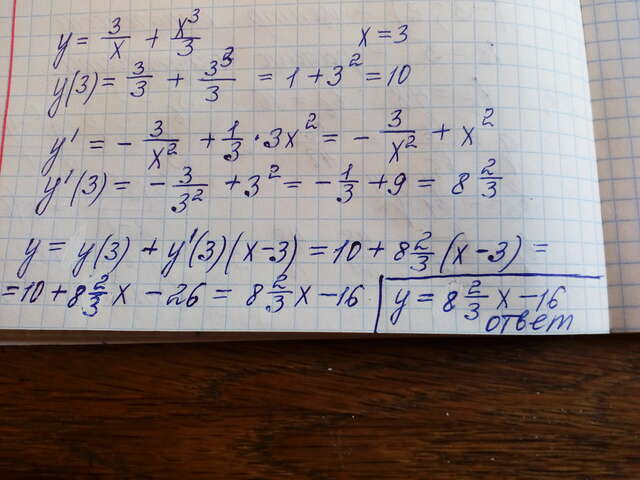 y = 3/x + x³/3    x = 3
y(3) = 3/3 + 3³/3 = 1 + 3² = 10
y' = - 3/x² + 1/3 · 3x² = - 3/x² + x²
y'(3) = - 3/3² + 3² = - 1/3 + 9 = 8 2/3
y = y(3) + y'(3)(x-3) = 10 + 8 2/3 (x-3) =
= 10 + 8 2/3 x - 26 = 8 2/3 x - 16    y = 8 2/3 x - 16
ответ